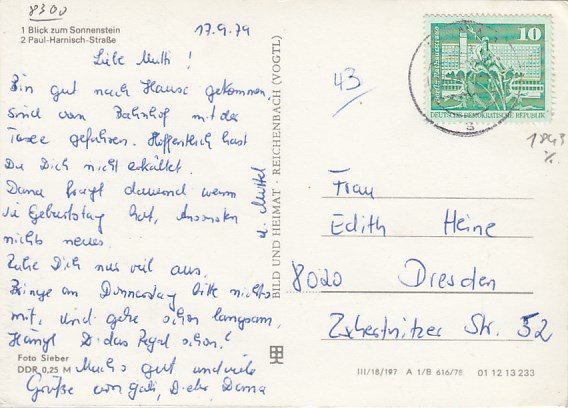 8300
17.9.79
1 Blick zum Sonnenstein
2 Paul-Harnisch-Straße
Liebe Mutti!
Bin gut nach Hause gekommen
sind vom Bahnhof mit der
Taxe gefahren. Hoffentlich hast
Du Dich nicht erkältet.
Dana fragt dauernd wann
sie Geburtstag hat, Ansonsten
nichts neues.
Ruhe Dich nur viel aus,
Bringe am Donnerstag bitte nichts
mit, und gehe schön langsam,
Hängt D. das Regal schon?
Machs gut und viele
Grüße von
Dana
Foto Sieber
DDR 0,25 M
BILD UND HEIMAT · REICHENBACH (VOGTL)
43
10
DEUTSCHE DEMOKRATISCHE REPUBLIK
1843
Frau
Edith Heine
8020 Dresden
Zschertnitzer Str. 52
III/18/197 A 1/B 616/78 01 12 13 233